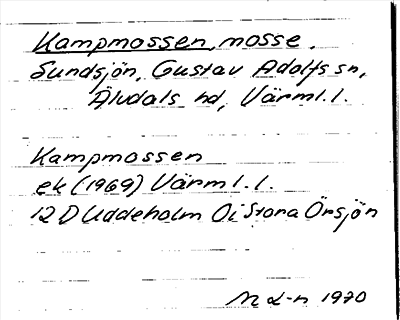 Kampmossen, mosse.
Sundsjön, Gustav Adolfs sn,
Älvdals hd, Värml. l.
Kampmossen
ek (1969) Värml. l.
12 D Uddeholm Oi Stora Örsjön
M L-n 1970